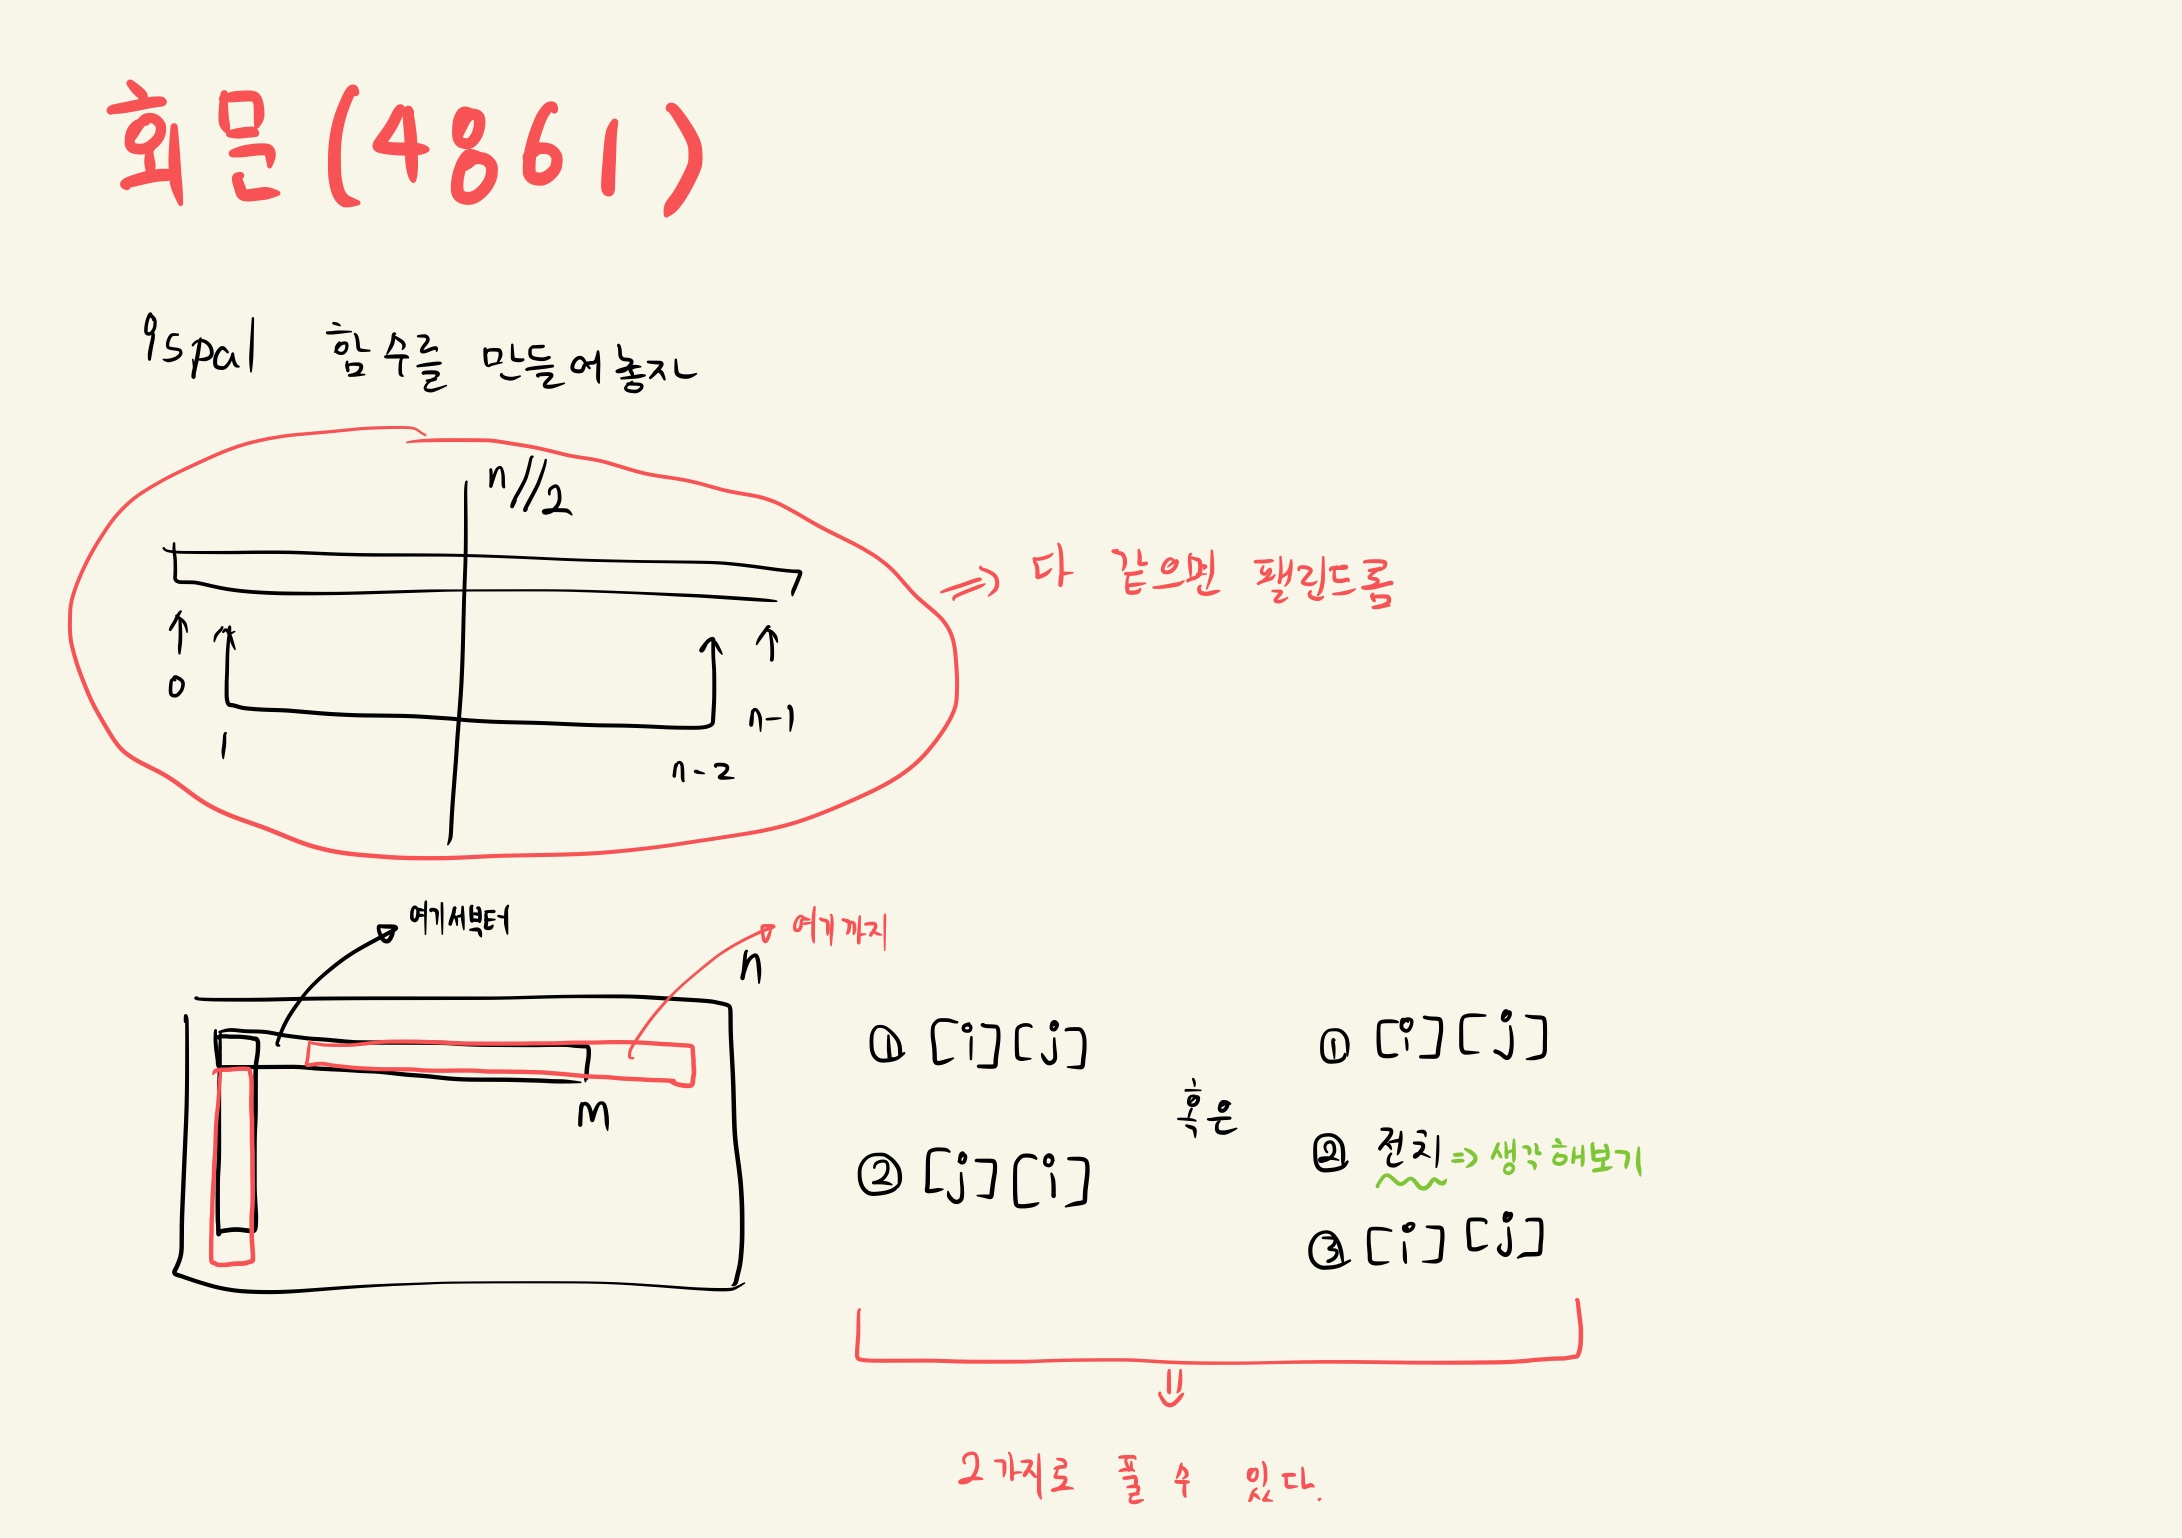 회문(4861)
ispal 함수를 만들어놓자
n//2
0
1
n-2
n-1
⇒ 다 같으면 팰린드롬
여기서부터
여기까지
n
m
① [i][j]
② [j][i]
혹은
① [i][j]
② 전치 ⇒ 생각해보기
③ [i][j]
⇓
2가지로 풀 수 있다.